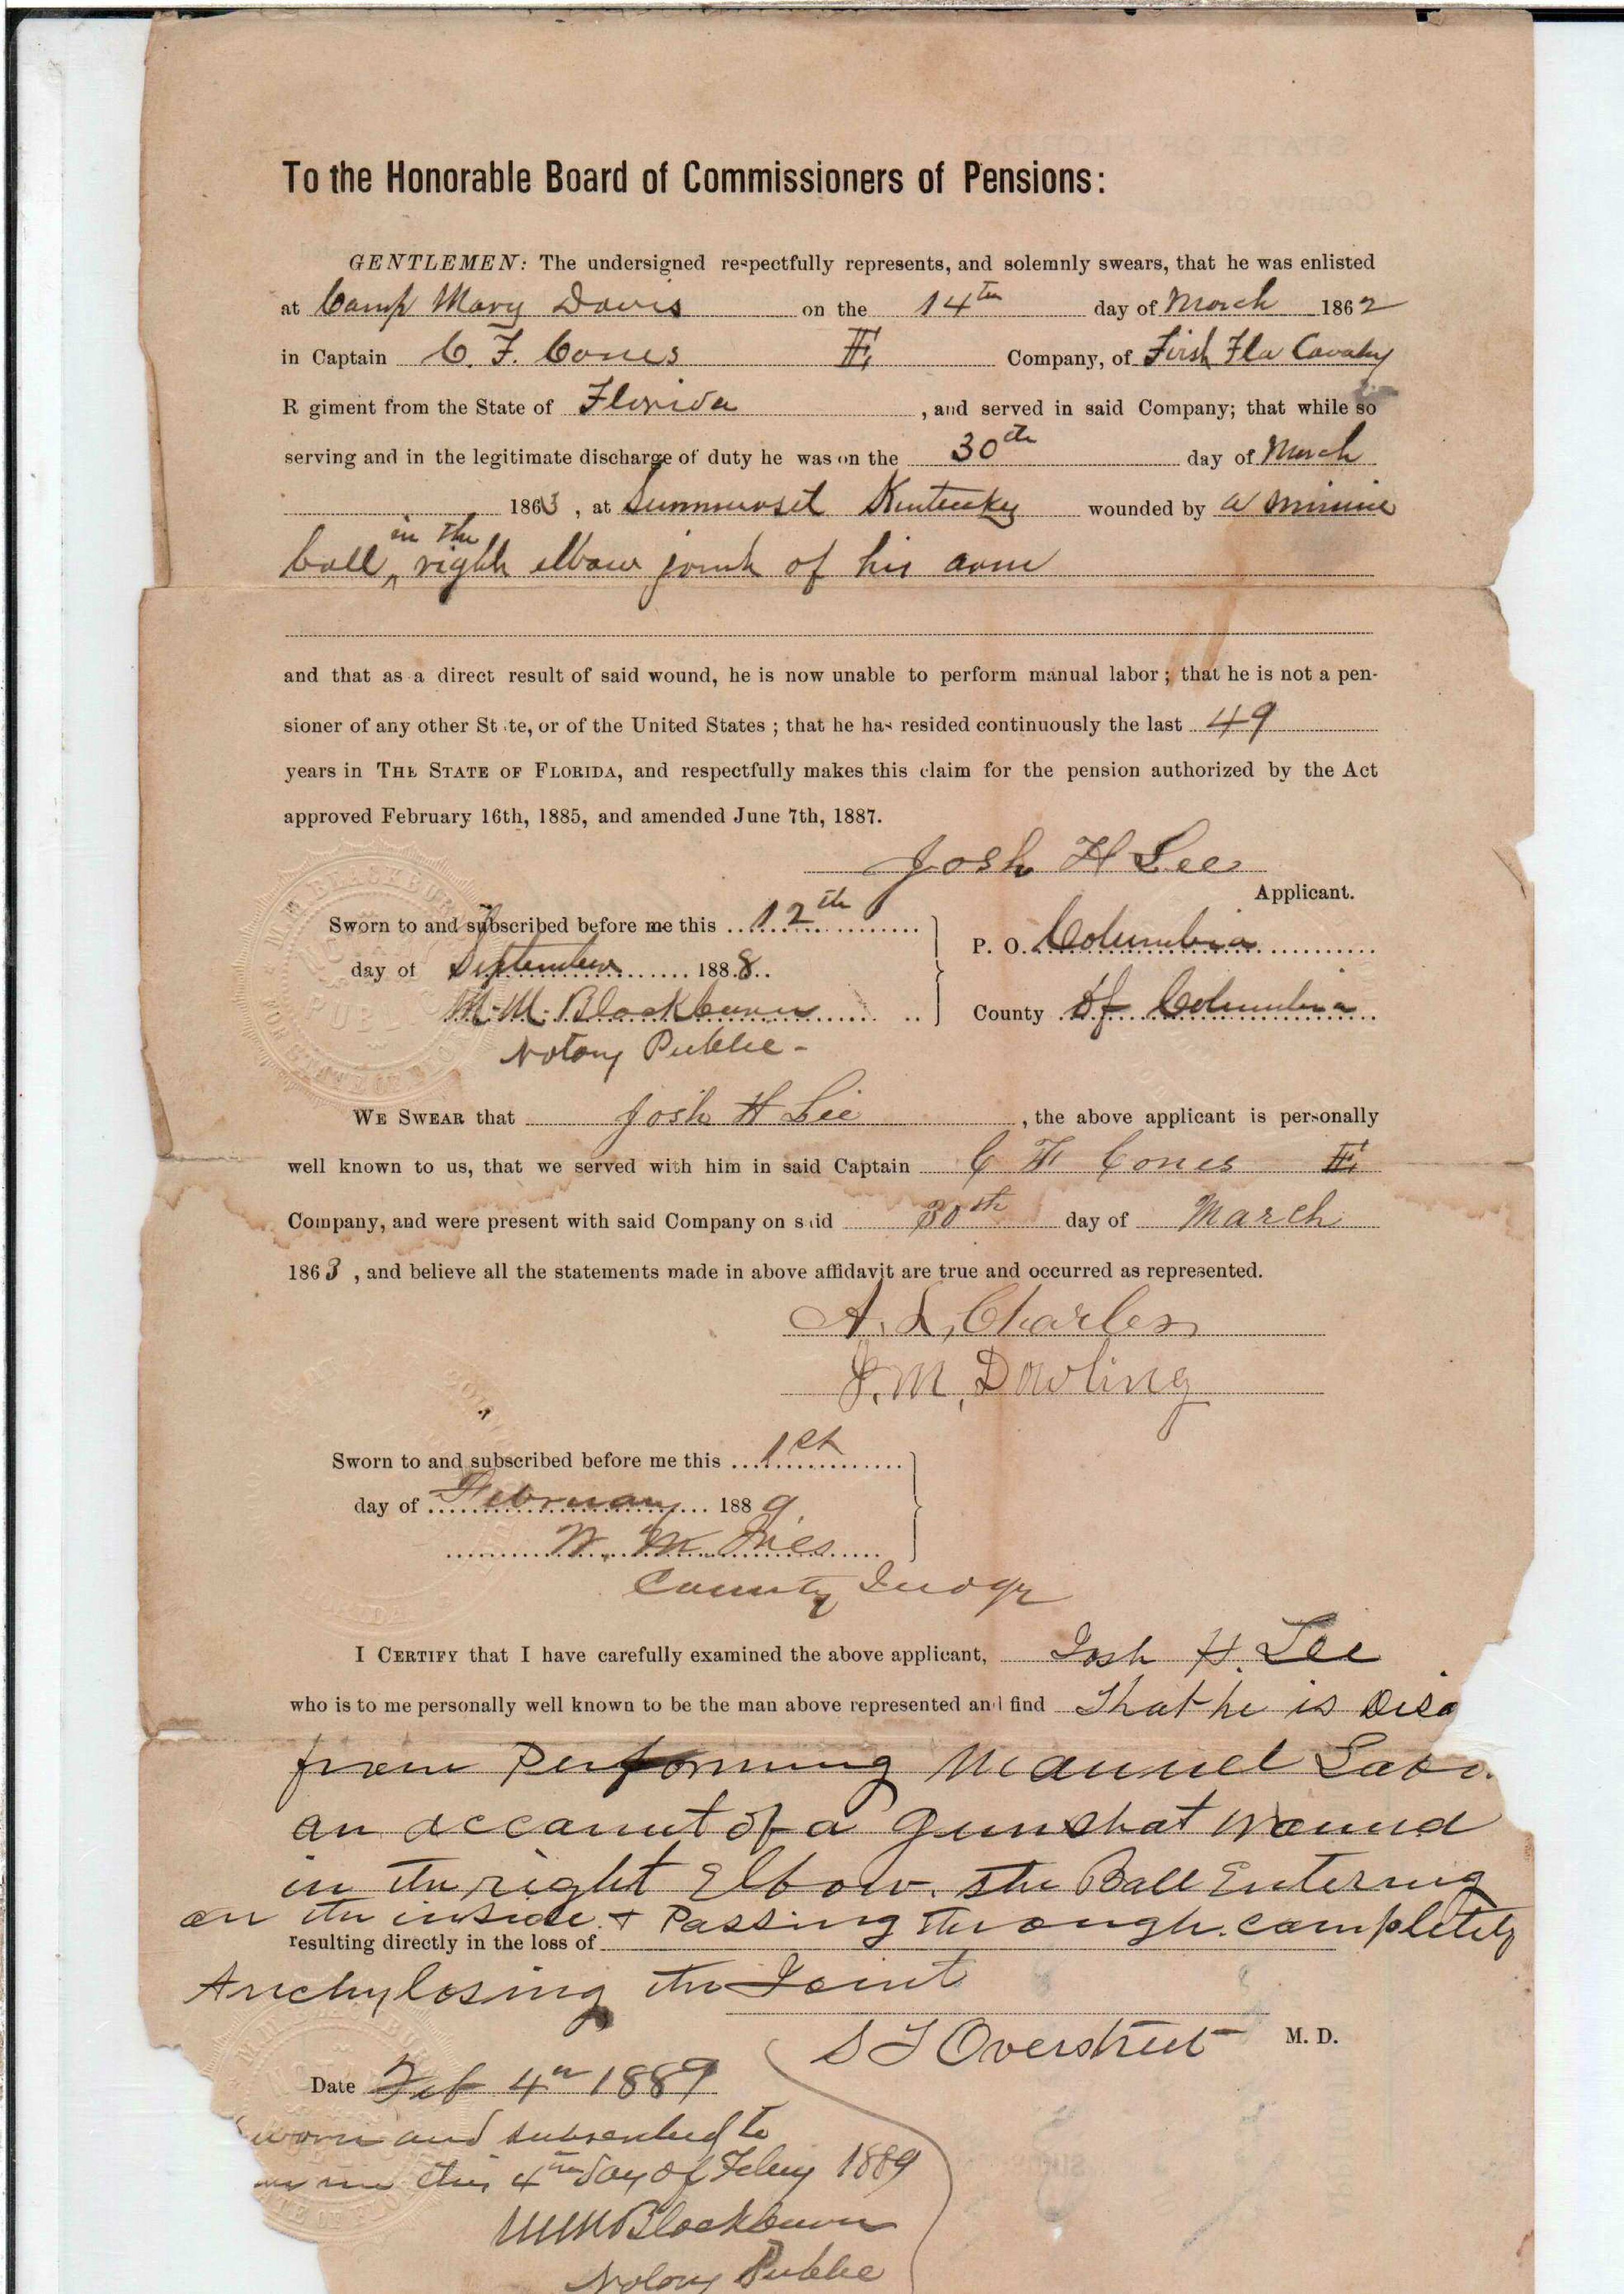 To the Honorable Board of Commissioners of Pensions:
GENTLEMEN: The undersigned respectfully represents, and solemnly swears, that he was enlisted
at Camp Mary Davis on the 14th day of March 1862
in Captain C. F. Cones E, Company, of First Fla Cavalry
R giment from the State of Florida , and served in said Company; that while so
serving and in the legitimate discharge of duty he was on the 30th day of March
1863, at Summerset Kentucky wounded by a minnie
ball, in the right elbow joint of his arm
and that as a direct result of said wound, he is now unable to perform manual labor; that he is not a pen-
sioner of any other St te, or of the United States; that he has resided continuously the last 49
years in THE STATE OF FLORIDA, and respectfully makes this claim for the pension authorized by the Act
approved February 16th, 1885, and amended June 7th, 1887.
Josh H Lee
Applicant.
Sworn to and subscribed before me this 12th
day of September 1888
M. M. Blackburn
Notary Public -
P. O. Columbia
County of Columbia
WE SWEAR that Josh H Lee , the above applicant is personally
well known to us, that we served with him in said Captain C F Cones E,
Company, and were present with said Company on said 30th day of March
1863, and believe all the statements made in above affidavit are true and occurred as represented.
A. L, Charles
J. M, Dowling
Sworn to and subscribed before me this 1st
day of February 1889.
W. M Ives
County Judge
I CERTIFY that I have carefully examined the above applicant, Josh H. Lee
who is to me personally well known to be the man above represented and find That he is Disa
from Performing Mannel Labo
on accaunt of a gunshot Wound
in the right Elbow. The Ball Entering
on the inside & Passing Through. completely
resulting directly in the loss of
Anchylosing the Joint
S T Overstreet M. D.
Date Feb 4th 1889
worn and subscribed to
me this 4th day of Feby 1889
M M Blackburn
Notary Public